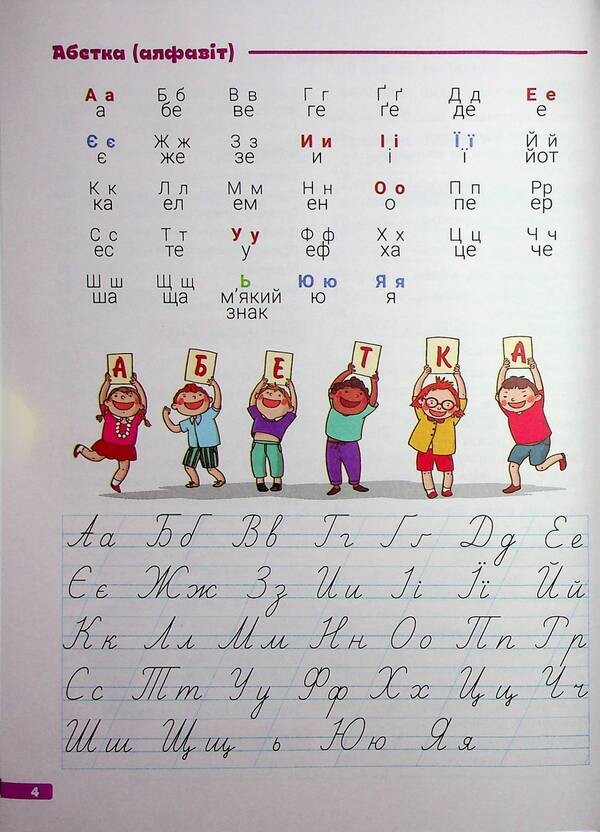 Абетка (алфавіт)
А а Б б В в Г г Ґ ґ Д д Е е
а бе ве ге ґе де е
Є є Ж ж З з И и І і Ї ї Й й
є же зе и і ї йот
К к Л л М м Н н О о П п Р р
ка ел ем ен о пе ер
С с Т т У у Ф ф Х х Ц ц Ч ч
ес те у еф ха це че
Ш ш Щ щ Ь Ю ю Я я
ша ща м'який ю я
знак
А Б Е Т К А
Аа Бб Вв Гг Ґґ Дд Ее
Єє Жж Зз Ии Іі Її Йй
Кк Лл Мм Нн Оо Пп Рр
Сс Тт Уу Фф Хх Цц Чч
Шш Щщ ь Юю Яя
4